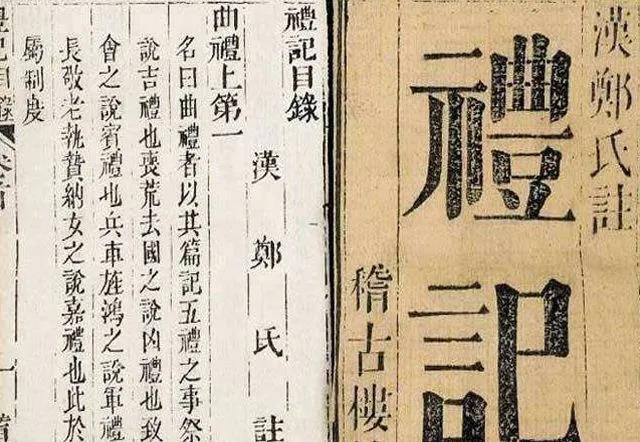 漢鄭氏註
禮記
稽古樓
禮記目錄
漢鄭氏註
曲禮上第一
名曰曲禮者以其篇記五禮之事祭
說吉禮也喪荒去國之說凶禮也致
會之說賓禮也兵車旌鴻之說軍禮
長敬老執贄納女之說嘉禮也此於
屬制度